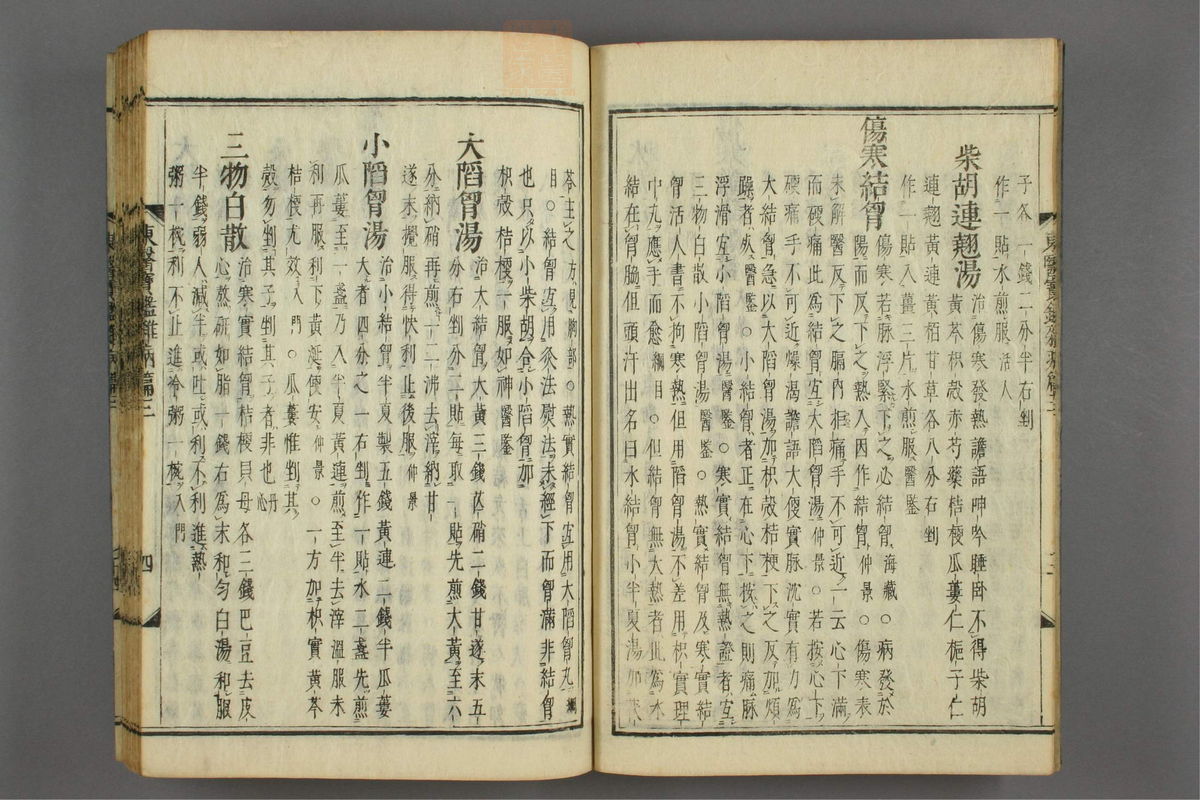 子各一錢二分半右剉
作一貼水煎服活人
柴胡連翹湯
治傷寒發熱譫語呻吟睡臥不得柴胡
黃芩枳殼赤芍藥桔梗瓜蔞仁梔子仁
連翹黃連黃栢甘草各八分右剉
作一貼入薑三片水煎服醫鑒
傷寒結胷
傷寒若脉浮緊下之心結胷海藏○病發於
陽而反下之熱入因作結胷仲景○傷寒表
未解醫反下之膈內拒痛手不可近一云心下滿
而硬痛此為結胷宜大陷胷湯仲景○若按心下
硬痛手不可近燥渴譫語大便實脉沈實有力為
大結胷急以大陷胷湯加枳殼桔梗下之反加煩
躁者死醫鑒○小結胷者正在心下按之則痛脉
浮滑宜小陷胷湯醫鑒○寒實結胷無熱證者宜
三物白散小陷胷湯醫鑒○熱實結胷及寒實結
胷活人書不拘寒熱但用陷胷湯不差用枳實理
中丸應手而愈綱目○但結胷無大熱者此為水
結在胷脇但頭汗出名曰水結胷小半夏湯加茯
苓主之方見胸部○熱實結胷宜用大陷胷丸綱
目○結胷宜用灸法熨法未經下而胷滿非結胷
也只以小柴胡合小陷胷加
枳殼桔梗服如神醫鑒
大陷胷湯
治大結胷大黃三錢芒硝二錢甘遂末五
分右剉分二貼每取一貼先煎大黃至六
分納硝再煎一二沸去滓納甘
遂末攪服得快利止後服仲景
小陷胷湯
治小結胷半夏製五錢黃連二錢半瓜蔞
大者四分之一右剉作一貼水二盞先煎
瓜蔞至一盞乃入半夏黃連煎至半去滓溫服未
利再服利下黃涎便安仲景○一方加枳實黃芩
桔梗尤效入門○瓜蔞惟剉其
殼勿剉其子剉其子者非也丹心
三物白散
治寒實結胷桔梗貝母各三錢巴豆去皮
心熬研如脂一錢右為末和勻白湯和服
半錢弱人減半或吐或利不利進熱
粥一椀利不止進冷粥一椀入門
東醫寶鑑雜病篇三
四